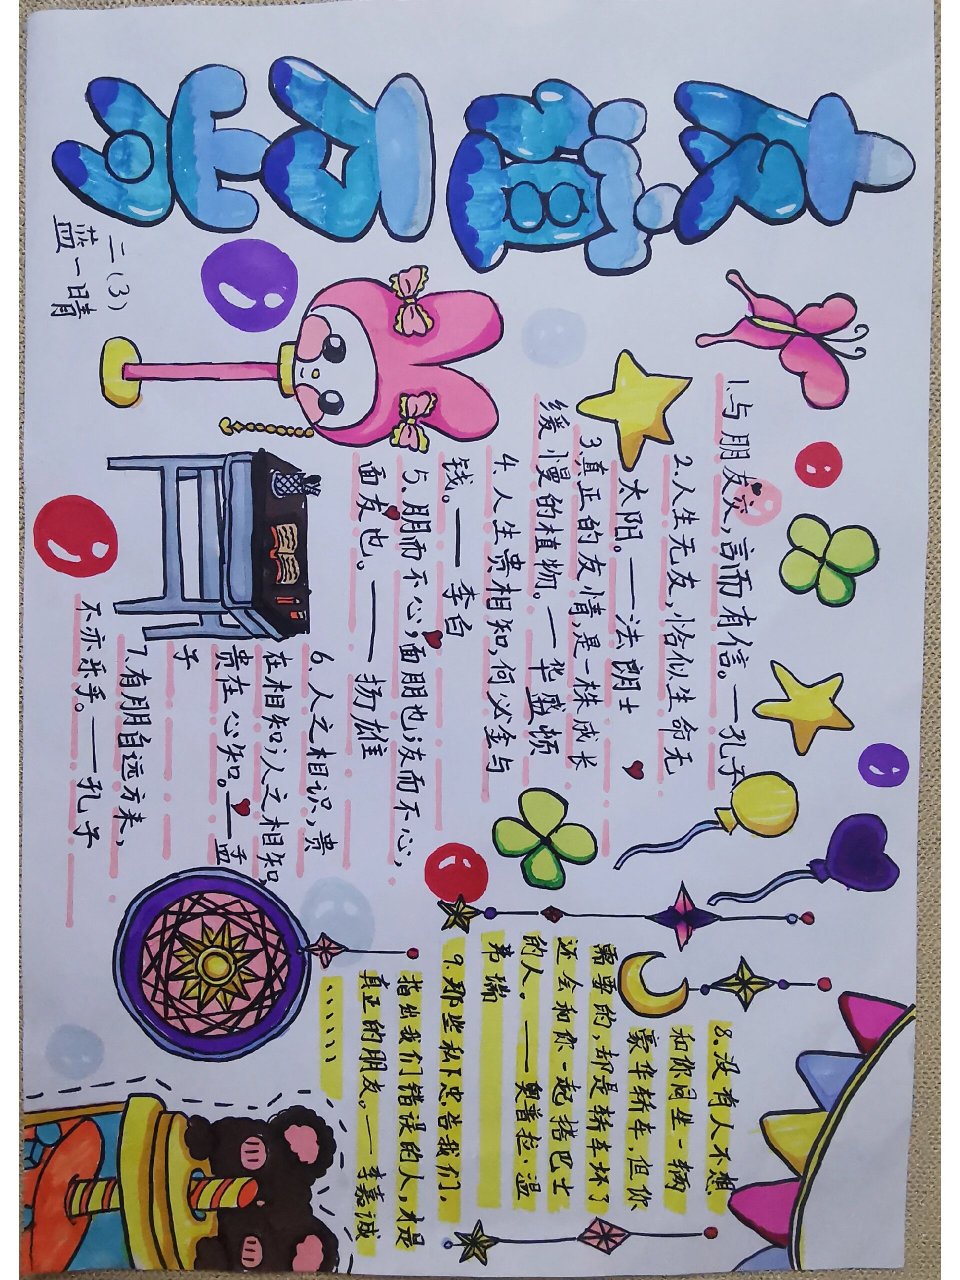 友谊万岁
二(3)
蓝一晴
1.与朋友交,言而有信。—孔子
2.人生无友,恰似生命无
太阳。——法朗士
3.真正的友情,是一株成长
缓慢的植物。—华盛顿
4.人生贵相知,何必金与
钱。—— 李白
5、朋而不心,面朋也;友而不心,
面友也。—— 扬雄
6、人之相识,贵
在相知;人之相知,
贵在心知。—孟
子
7.有朋自远方来,
不亦乐乎。——孔子
8.没有人不想
和你同坐一辆
豪华轿车,但你
需要的,却是轿车坏了
还会和你一起搭巴士
的人。——奥普拉·温
弗瑞
9.那些私下忠告我们,
指出我们错误的人,才是
真正的朋友。—李嘉诚